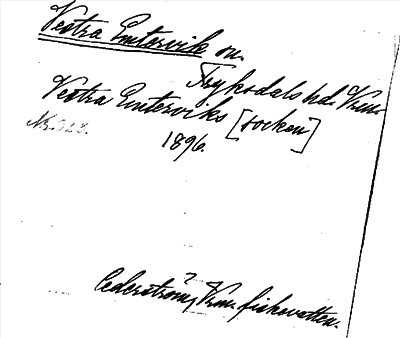 Västra Ämtervik sn.
Fryksdals hd. Vrm.
Västra Emterviks [socken]
1896.
Cederström, Vrm. fiskevatten.